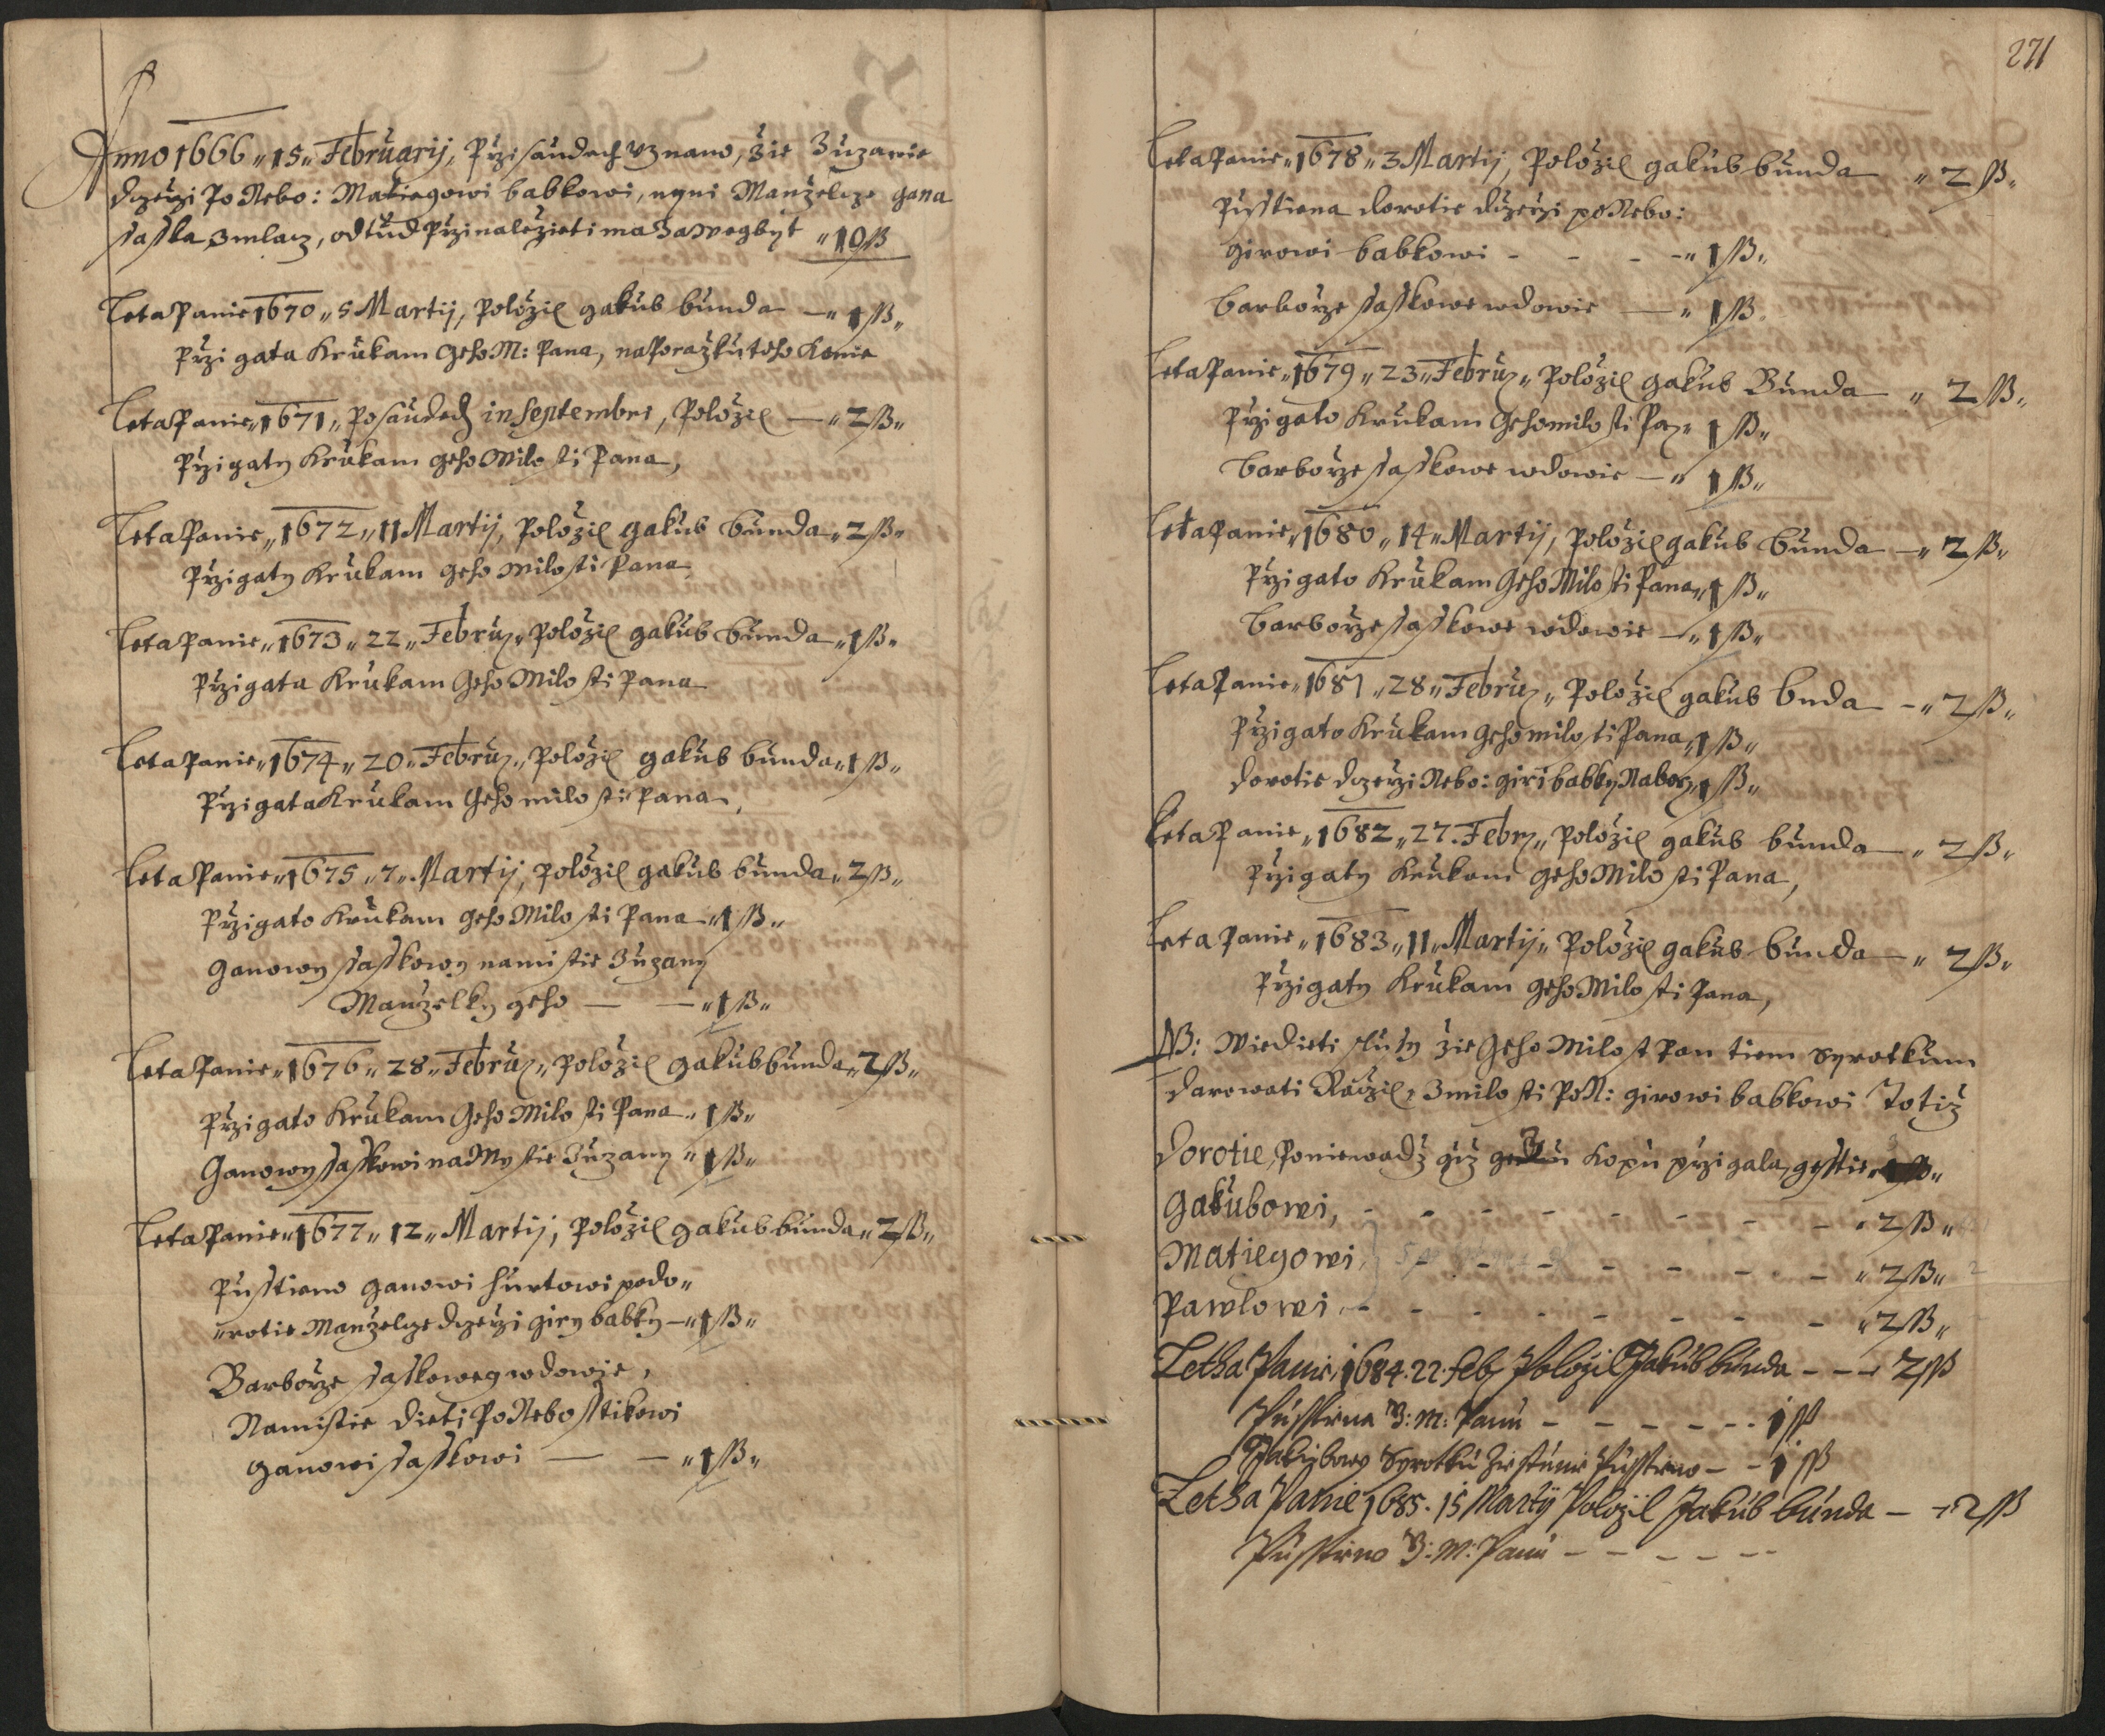 Anno 1666 „ 15 „ Februarij, Przi saudech uznano, žie Zuzanie
dczerzi Po Nebo: Matiegowi babkowi, nyni Manželcze Jana
Sasska z mlacz, odtud Przinaležieti ma za Wegbyt „ 10 ß
Leta Panie 1670 „ 5 Martij, Položil Jakub bunda — „ 1 ß „
Przi gata k rukam geho M: Pana, na Poražku toho konie
Leta Panie „ 1671 „ Po saudech in Septembri, Položil — „ 2 ß „
Przigaty k rukam geho Milosti Pana,
Leta Panie „ 1672 „ 11 Martij, Položil gakub bunda „ 2 ß „
Przigaty k rukam geho Milosti Pana
Leta Panie „ 1673 „ 22 „ Febru: „ Položil gakub bunda „ 1 ß „
Przigata k rukam Geho Milosti Pana
Leta Panie „ 1674 „ 20 „ Febru: „ Položil gakub bunda „ 1 ß „
Przigata k rukam Geho milosti Pana,
Leta Panie „ 1675 „ 7 „ Martij, Položil gakub bunda „ 2 ß „
Przigato k rukam geho Milosti Pana „ 1 ß „
Ganowy Sasskowy namistie Zuzany
Manželky geho — — „ 1 ß „
Leta Panie „ 1676 „ 28 „ Febru: „ Položil gakub bunda „ 2 ß „
Przigato k rukam Geho Milosti Pana „ 1 ß „
Ganowy Sasskowi na Mystie Zuzany „ 1 ß „
Leta Panie „ 1677 „ 12 „ Martij, Položil gakub bunda „ 2 ß „
Pusstieno ganowi hurtowi po do „
„ rotie Manželcze dczerzi giry babky — „ 1 ß „
Barborze Sasskoweg wdowie,
Namistie dieti Po Nebosstikowi
ganowi Sasskowi — — „ 1 ß „
271
Leta Panie „ 1678 „ 3 Martij, Položil gakub bunda „ 2 ß „
Pusstiena dorotie dczerzi po Nebo:
girowi babkowi - - - - „ 1 ß „
barborze Sasskowe wdowie — „ 1 ß „
Leta Panie „ 1679 „ 23 „ Febru: „ Položil gakub Bunda „ 2 ß „
Przigato k rukam Geho milosti Pa: „ 1 ß „
barborze Sasskowe wdowie — „ 1 ß „
Leta Panie „ 1680 „ 14 „ Martij, Položil gakub bunda — „ 2 ß „
Przigato k rukam Geho Milosti Pana „ 1 ß „
barborze Sasskowe wdowie — „ 1 ß „
Leta Panie „ 1681 „ 28 „ Febru: „ Položil gakub bnda — „ 2 ß „
Przigato k rukam Geho milosti Pana „ 1 ß „
dorotie dczerzi Nebo: giri babky „ 1 ß „
Leta Panie „ 1682 „ 27. Febr: „ Položil gakub bunda — „ 2 ß „
Przigaty k rukam geho Milosti Pana,
Leta Panie „ 1683 „ 11 „ Martij „ Položil gakub bunda — „ 2 ß „
Przigaty k rukam geho Milosti Pana,
NB: Wiedieti slussy žie Geho Milost Pan tiem Syrotkum
darowati Raczil z milosti Po N: girowi babkowi Totiž
Dorotie, Poniewadž giž kopu przigala, gesstie
Gakubowi, - - - - - - - - „ 2 ß „
Matiegowi, - - - - - - - „ 2 ß „
Pawlowi, - - - - - - - - „ 2 ß „
Letha Panie 1684. 22. Feb: Položil Jakub bunda - - - 2 ß
Pusstieno M: Panu - - - - - - 1 ß
Jakubowy Syrotku Pusstieno - - 1 ß
Letha Panie 1685. 15 Martij Položil Jakub bunda — 2 ß
Pusstieno M: Panu - - - - - -